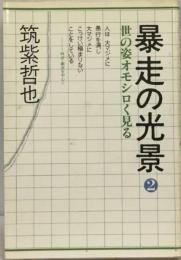 暴走の光景2
世の姿オモシロく見る
人は 大マジメに
愚行を演じ
大マジメに
こっけい極まりない
ことをしている
筑紫哲也